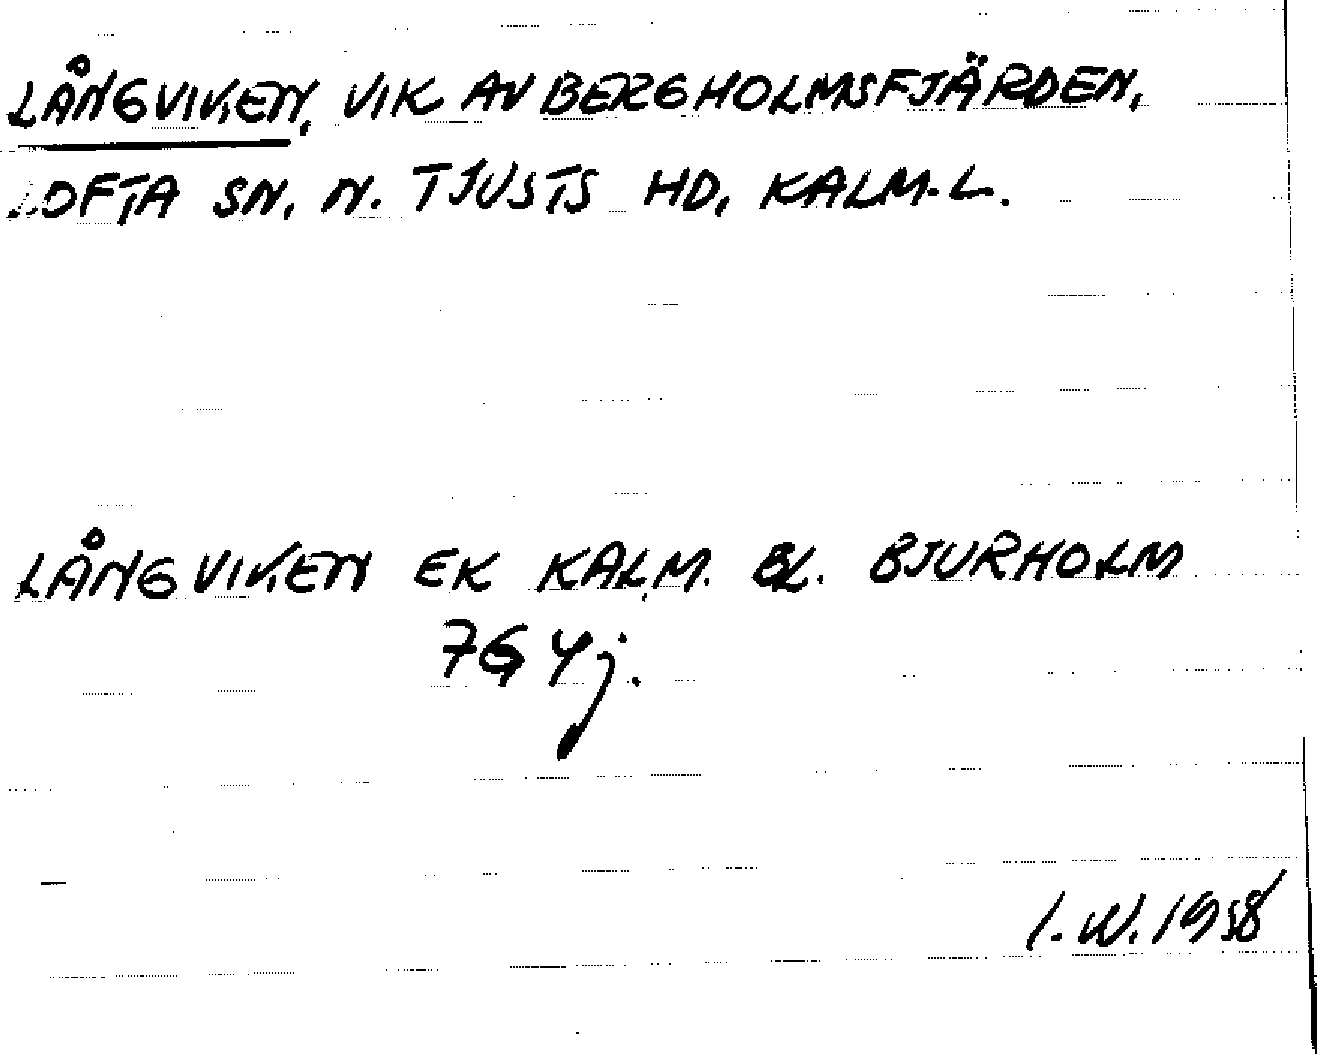 LÅNGVIKEN, VIK AV BERGHOLMSFJÄRDEN,
LOFTA SN, N. TJUSTS HD, KALM. L.
LÅNGVIKEN EK KALM. BL. BJURHOLM
7G 4j.
I. W. 1958